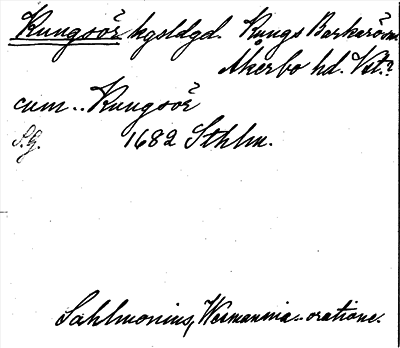 Kungsör kgsldgd. Kungs Barkarö sn.
Åkerbo hd. Vstm.
cum.. Kungsör
S.G. 1682 Sthlm.
Sahlmonius, Wesmannia.. oratione.